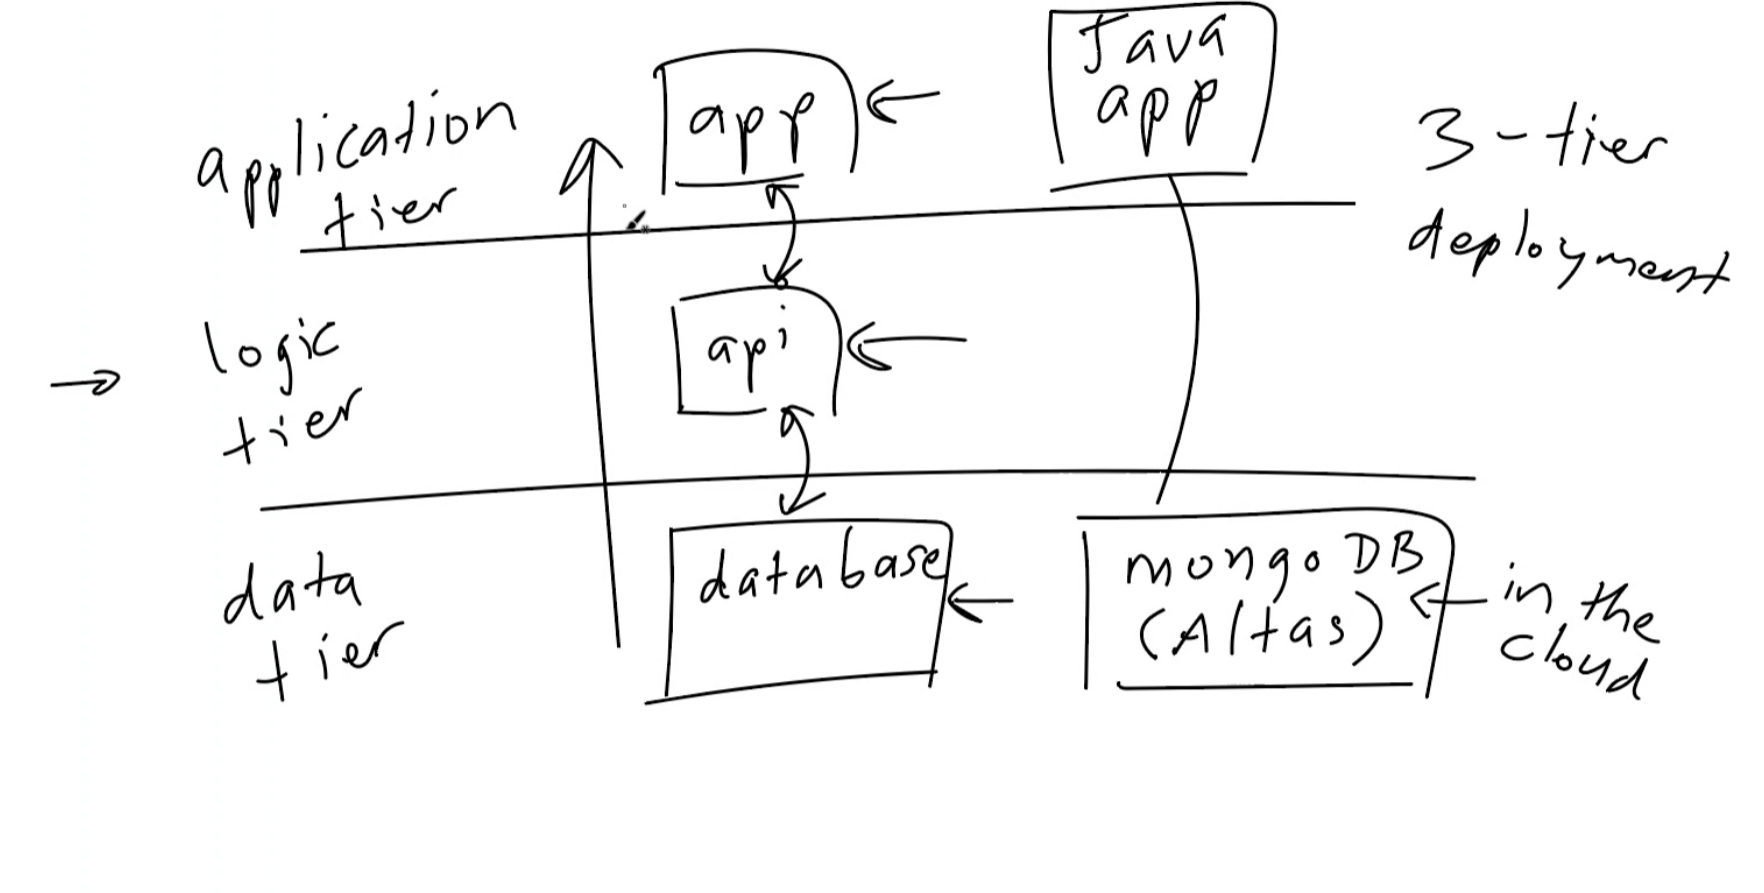 application
tier
app
Java
app
3-tier
deployment
logic
tier
api
data
tier
database
mongoDB
(Altas)
in the
cloud